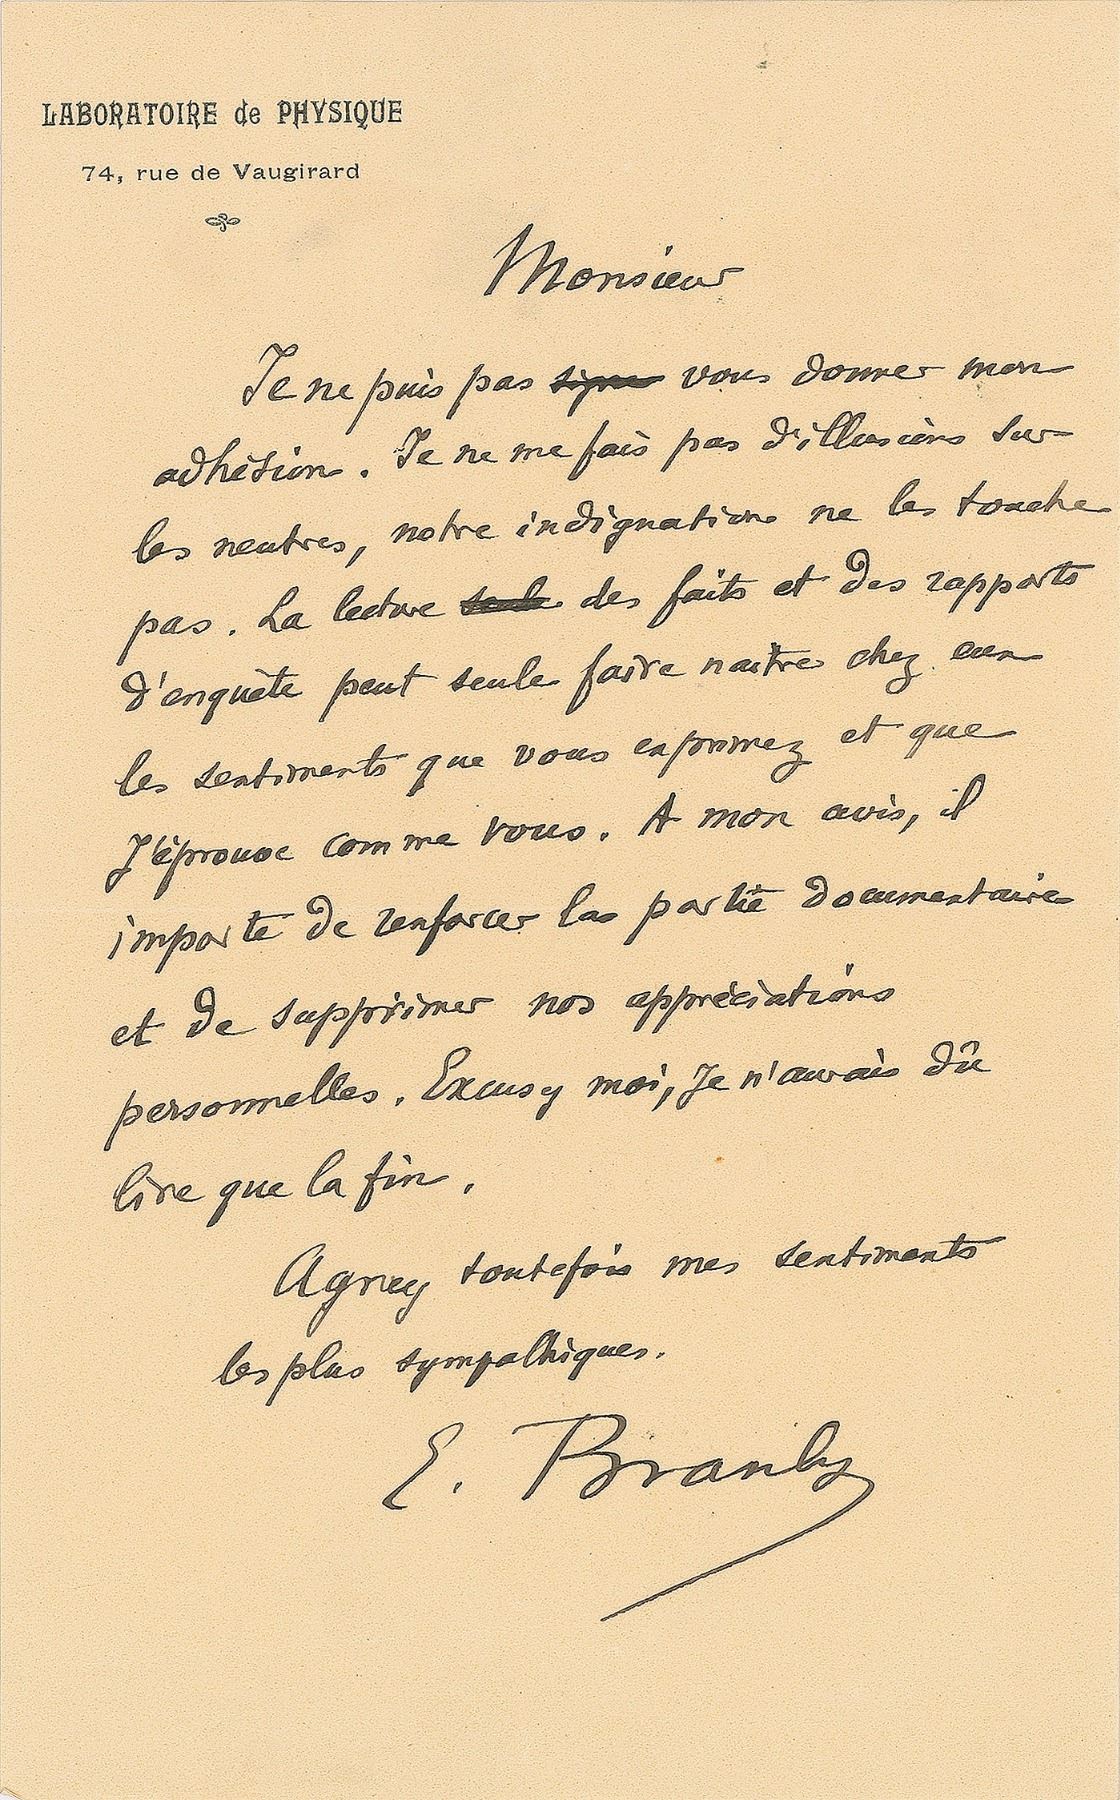 LABORATOIRE de PHYSIQUE
74, rue de Vaugirard
Monsieur
Je ne puis pas signer vous donner mon
adhésion. Je ne me fais pas d'illusions sur
les neutres, notre indignation ne les touche
pas. La lecture seule des faits et des rapports
d'enquête peut seule faire naître chez eux
les sentiments que vous exprimez et que
J'éprouve comme vous. A mon avis, il
importe de renforcer la partie documentaire
et de supprimer nos appréciations
personnelles. Excusez moi, Je n'aurais dû
lire que la fin.
Agréez toutefois mes sentiments
les plus sympathiques.
E. Branly